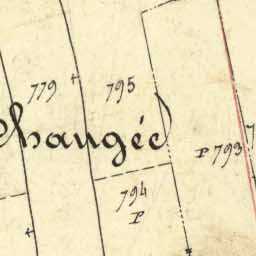 779
795
Changée
P 793
794
P